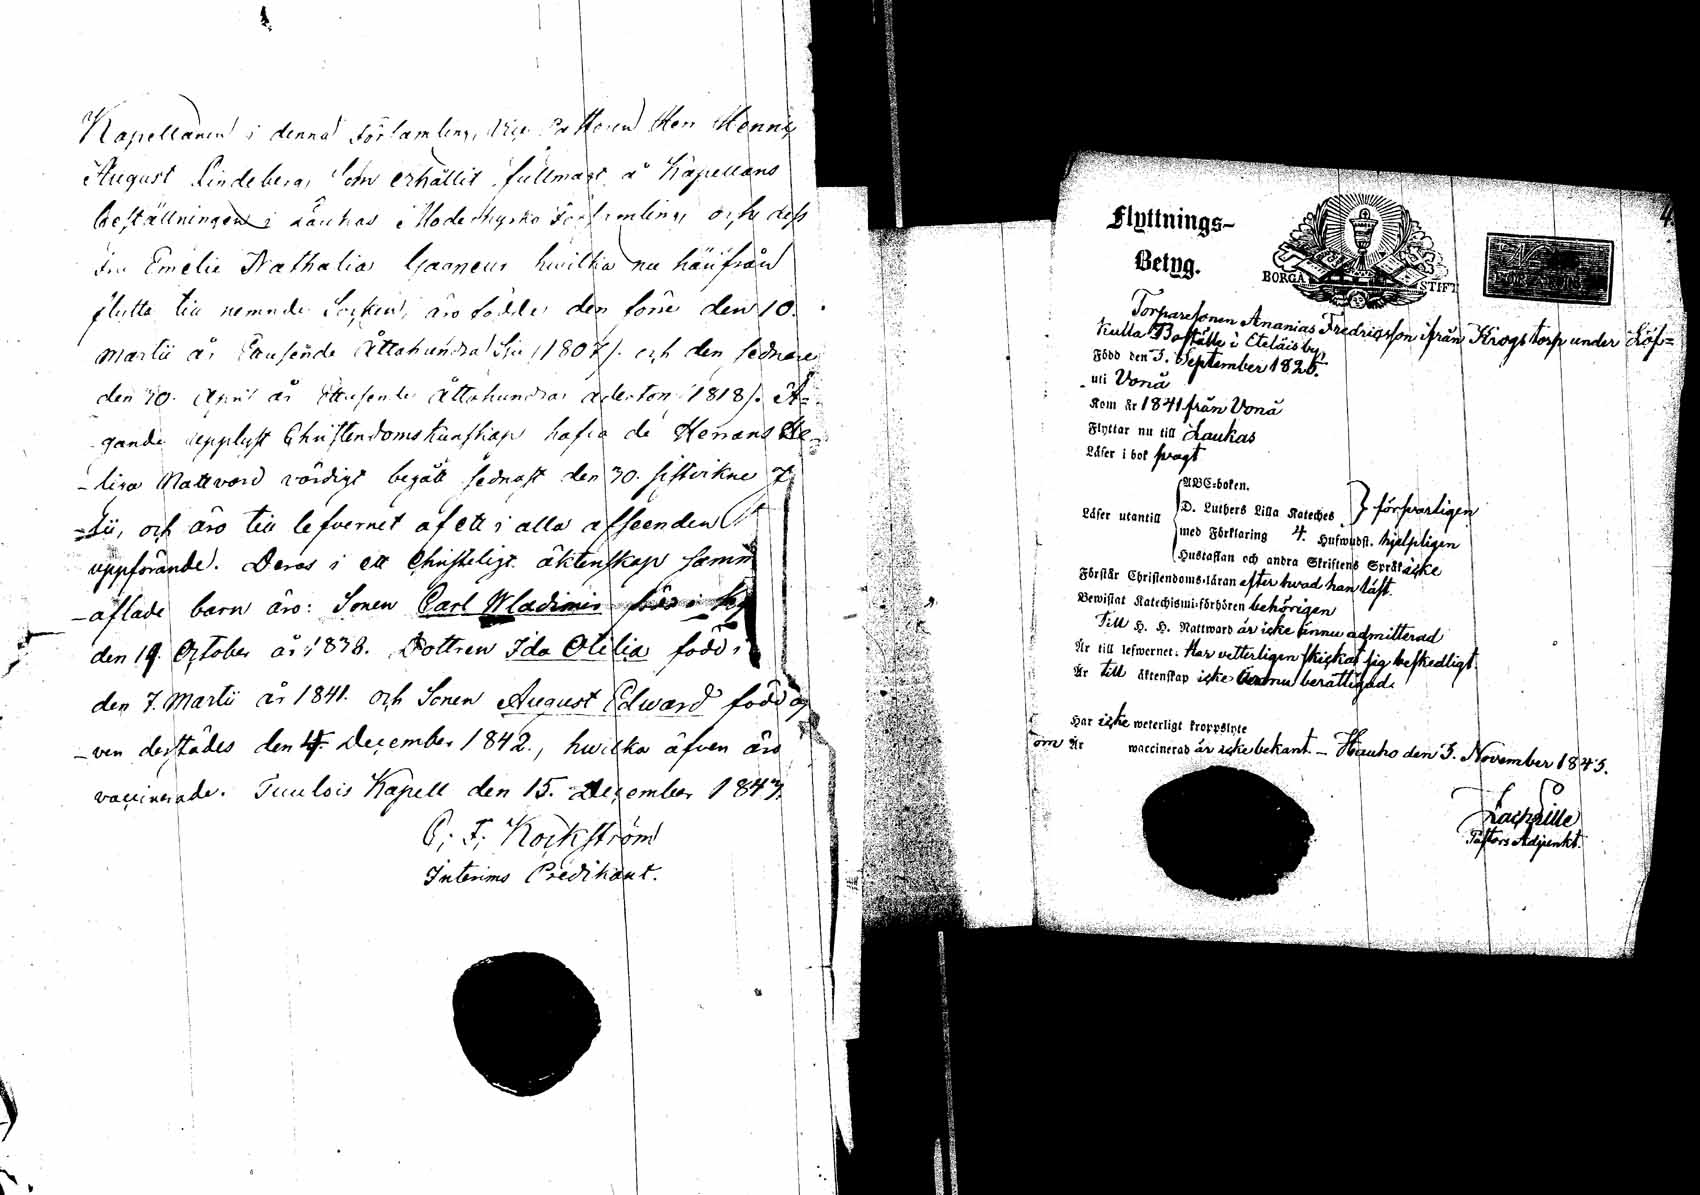 Kapellanen i denna Församling, Vice Pastoren Herr Henric
August Lindeberg, som erhållit fullmagt å Kapellans
beställningen i Laukas Moderkyrko Församling och dess
Fru Emelie Nathalia hvilka nu härifrån
flytta till nemnde Socken, äro födde den förre den 10.
Martii år Ettusende Åttahundra Sju /1807/. och den sednare
den 30. April år Ettusende Åttahundra aderton /1818/. Ä-
gande upplyst Christendomskunskap hafva de Herrans He-
-liga Nattvard värdigt begått sednast den 30. sistvikne
och äro till lefvernet af ett i alla afseenden
uppförande. Deras i ett Christeligt äktenskap samm
-aflade barn äro: Sonen Carl Wladimir född i
den 19. October år 1838. Dottren Ida Otilia född i
den 7. Martii år 1841. och Sonen August Edward född äf
-ven derstädes den 4. December 1842., hvilka äfven äro
vaccinerade. Tuulois Kapell den 15. December 1843.
C. F. Kockström
Interims Predikant.
4.
Flyttnings-
Betyg.
BORGÅ STIFT
Torparesonen Ananias Fredricsson ifrån Krogstorp under Löf=
kulla Boställe i Eteläis by.
Född den 5. September 1826.
uti Vonå
Kom år 1841 från Vonå
Flyttar nu till Laukas
Läser i bok svagt
Läser utantill
ABC-boken.
D. Luthers Lilla Kateches } försvarligen
med Förklaring 4. Hufwudst. hjelpligen
Hustaflan och andra Skriftens Språk icke
Förstår Christendoms-läran efter hvad han läst.
Bewistat Katechismi-förhören behörigen
Till H. H. Nattward är icke ännu admitterad
Är till lefwernet: Har vetterligen skickat sig beskedligt.
Är till äktenskap icke ännu berättigad.
Har icke weterligt kroppslyte
om Är waccinerad är icke bekant. — Hauho den 3. November 1843.
Pastors Adjunkt.